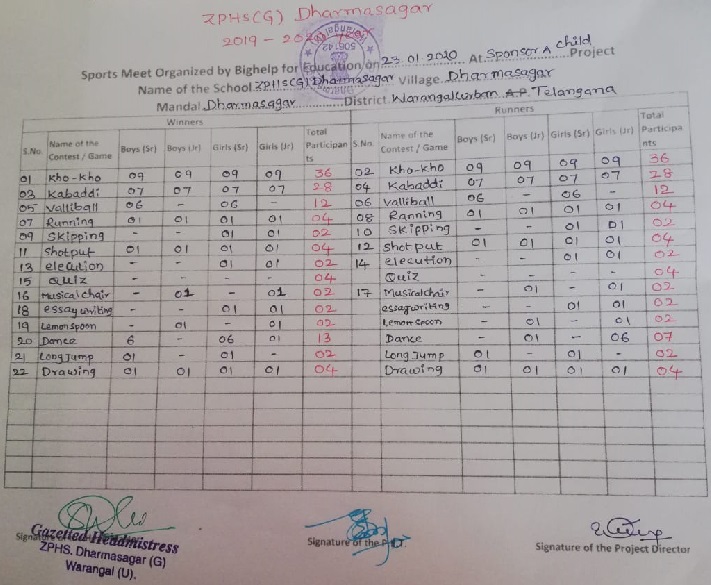 ZPHS(G) Dharmasagar
2019 - 20
Sports Meet Organized by Bighelp for Education on 23.01.2020 At Sponsor A Child Project
Name of the School ZPHS(G) Dharmasagar Village Dharmasagar
Mandal Dharmasagar District Warangal urban A.P. Telangana
Winners Runners
S.No. Name of the Contest / Game Boys (Sr) Boys (Jr) Girls (Sr) Girls (Jr) Total Participants S.No. Name of the Contest / Game Boys (Sr) Boys (Jr) Girls (Sr) Girls (Jr) Total Participants
01 Kho-Kho 09 09 09 09 36 02 Kho-kho 09 09 09 09 36
03 Kabaddi 07 07 07 07 28 04 Kabaddi 07 07 07 07 28
05 Valliball 06 - 06 - 12 06 Valliball 06 - 06 - 12
07 Running 01 01 01 01 04 08 Running 01 01 01 01 04
09 Skipping - - 01 01 02 10 Skipping - - 01 01 02
11 Shotput 01 01 01 01 04 12 Shotput 01 01 01 01 04
13 elecution - - 01 01 02 14 elecution - - 01 01 02
15 Quiz - - - - 04 Quiz - - - - 04
16 Musicalchair - 01 - 01 02 17 Musicalchair - 01 - 01 02
18 essay writing - - 01 01 02 essaywriting - - 01 01 02
19 Lemonspoon - 01 - 01 02 Lemon Spoon - 01 - 01 02
20 Dance 6 - 06 01 13 Dance - 01 - 06 07
21 Long Jump 01 - 01 - 02 Long Jump 01 - 01 - 02
22 Drawing 01 01 01 01 04 Drawing 01 01 01 01 04
Gazetted Headmistress
ZPHS. Dharmasagar (G)
Warangal (U).
Signature of the P.E.T.
Signature of the Project Director